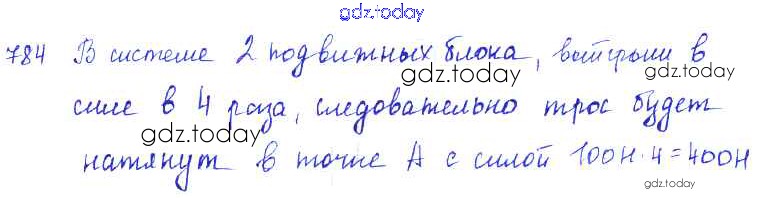 gdz.today
784 В системе 2 подвижных блока, выигрыш в
gdz.today
силе в 4 раза, следовательно трос будет
gdz.today
gdz.today
натянут в точке А с силой 100Н·4=400Н
gdz.today